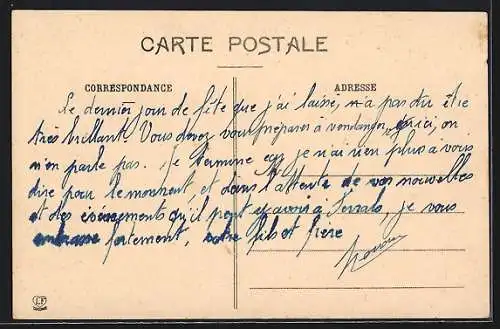 CARTE POSTALE
CORRESPONDANCE
ADRESSE
Le dernier jour de fête que j'ai laissé, n'a pas dû être
très brillant. Vous devez vous préparer à vendanger, ici, on
n'en parle pas. Je termine car je n'ai rien plus à vous
dire pour le moment, et dans l'attente de vos nouvelles
et des évènements qu'il peut y avoir à Ferrals, je vous
embrasse fortement, votre fils et frère
LF